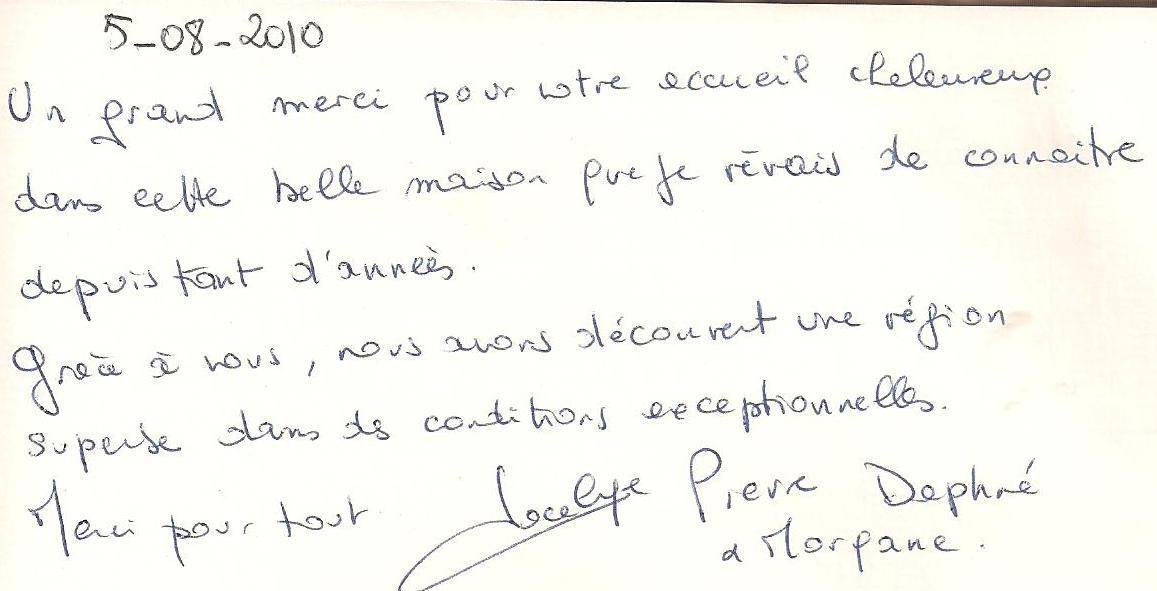 5-08-2010
Un grand merci pour votre accueil chaleureux
dans cette belle maison que je rêvais de connaitre
depuis tant d'années.
Grâce à vous, nous avons découvert une région
superbe dans des conditions exceptionnelles.
Merci pour tout Jocelyne Pierre Daphné
& Morgane.